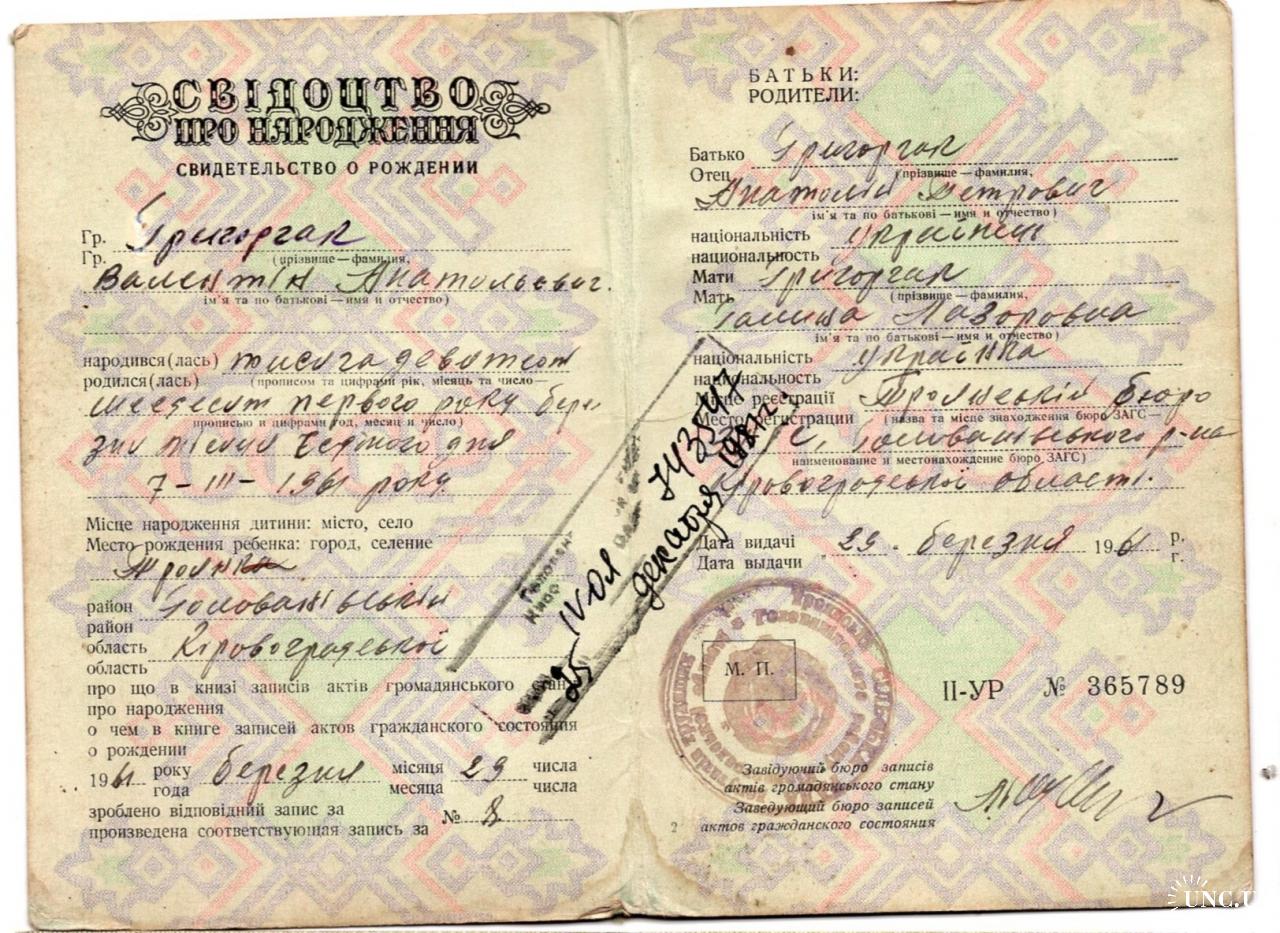 СВІДОЦТВО
ПРО НАРОДЖЕННЯ
СВИДЕТЕЛЬСТВО О РОЖДЕНИИ
Гр. Григорчак
Гр. (прізвище—фамилия,
Валентін Анатольевич.
ім'я та по батькові—имя и отчество)
народився(лась) тисяча девятсот
родился(лась) (прописом та цифрами рік, місяць та число—
шесдесят первого року бере
прописью и цифрами год, месяц и число)
зня місяця дня
7-III-1961 року.
Місце народження дитини: місто, село
Место рождения ребенка: город, селение
Троянка
район Голованівський
район
область Кіровоградської
область
про що в книзі записів актів громадянського стану
про народження
о чем в книге записей актов гражданского состояния
о рождении
1961 року березня місяця 29 числа
года месяца числа
зроблено відповідний запис за № 8
произведена соответствующая запись за
БАТЬКИ:
РОДИТЕЛИ:
Батько Григорчак
Отец (прізвище—фамилия,
Анатолій Петрович
ім'я та по батькові—имя и отчество)
національність українець
национальность
Мати Григорчак
Мать (прізвище—фамилия,
Галина Лазоровна
ім'я та по батькові—имя и отчество)
національність українка
национальность
Місце реєстрації Троянський бюро
Место регистрации (назва та місце знаходження бюро ЗАГС—
Голованівського р-на
наименование и местонахождение бюро ЗАГС)
Кіровоградської області.
Дата видачі 29. березня 1961 р.
Дата выдачи г.
IV-ОЛ 743547
25 декабря
М. П.
II-УР № 365789
Завідуючий бюро записів
актів громадянського стану
Заведующий бюро записей
актов гражданского состояния
2
UNC.U